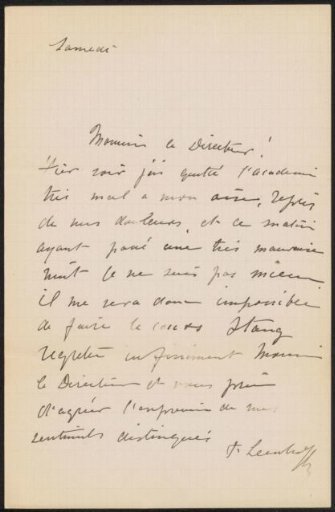 Samedi
Monsieur le Directeur!
Hier soir j'ai quitté l'academie
très mal a mon aise, repris
de mes douleurs, et ce matin
ayant passé une très mauvaise
nuit je ne suis pas mieux
il me sera donc impossible
de faire le cours
regrette infiniment Monsieur
le Directeur et vous prie
d'agréer l'expression de mes
sentiments distingués